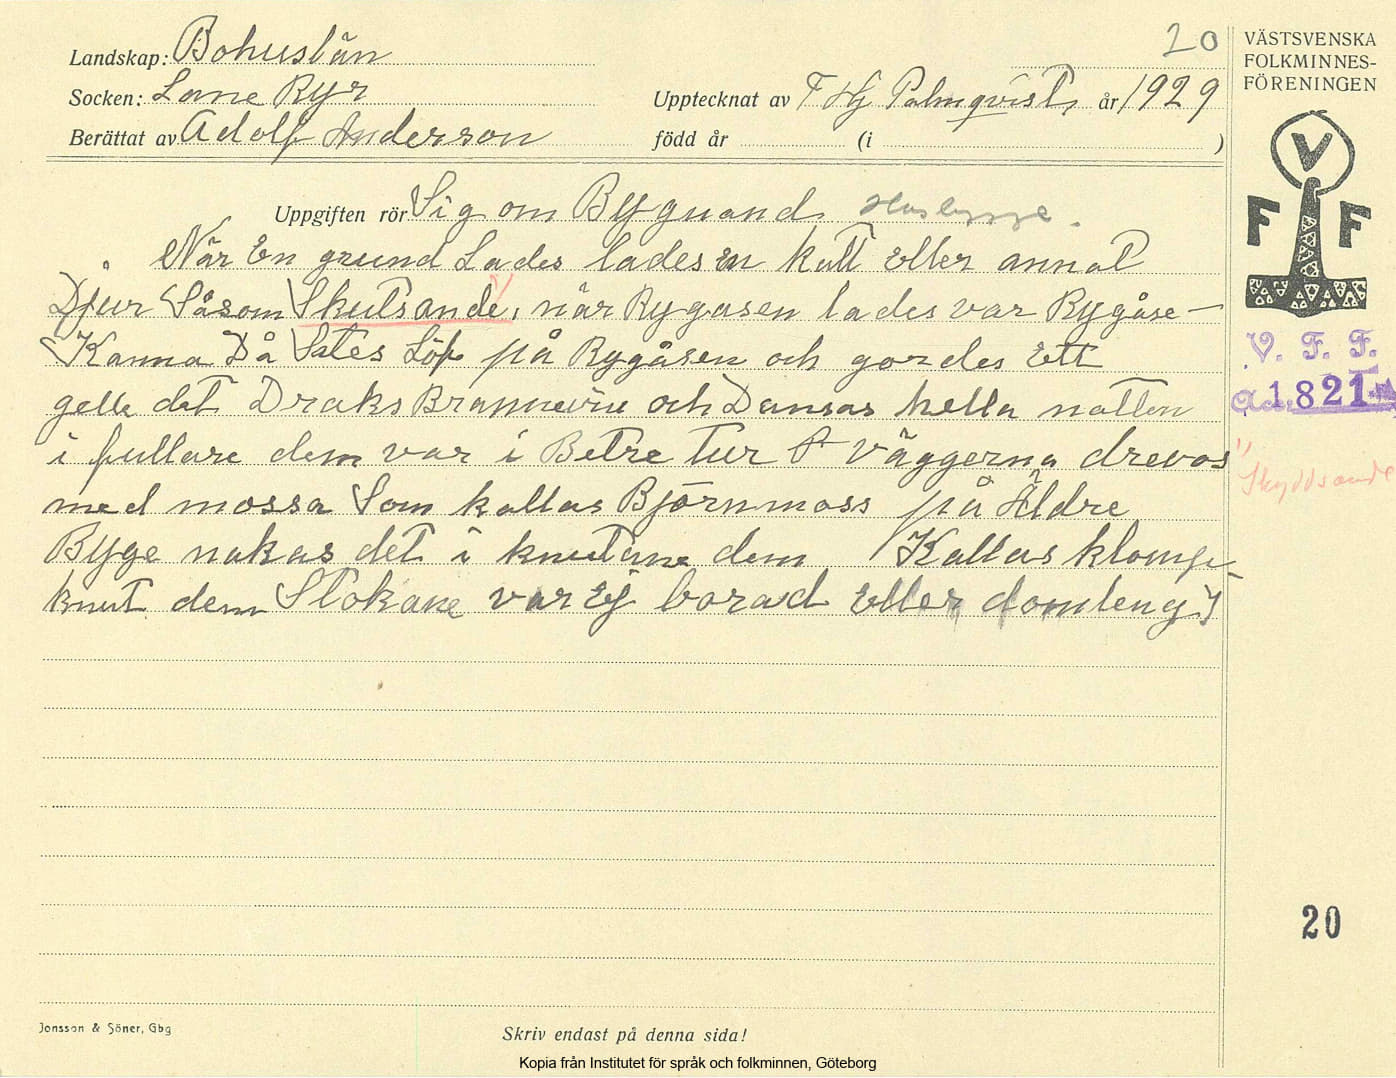 20
VÄSTSVENSKA
FOLKMINNES-
FÖRENINGEN
Landskap: Bohuslän
Socken: Lane Ryr
Upptecknat av F Hj Palmqvist, år 1929
Berättat av Adolf Anderson
född år (i )
V
F F
Uppgiften rör Sig om Bygnand Husbygge.
När En grund Lades lades en katt Eller annat
Djur Såsom Skutsande, när Rygasen lades var Rygåse-
Kanna Då Sates Löf på Rygåsen och gordes Ett
gelle det Draks Brannevin och Dansas hella natten
i fullare dem var i Betre tur P väggerna drevos
med mossa Som kallas Björnmoss på Äldre
Byge nakas det i knutane dem Kallas klomp-
knut dem Stokane var Ej borad Eller
V. F. F.
Acc. 1821
"Skyddsande
20
Jonsson & Söner, Gbg
Skriv endast på denna sida!
Kopia från Institutet för språk och folkminnen, Göteborg